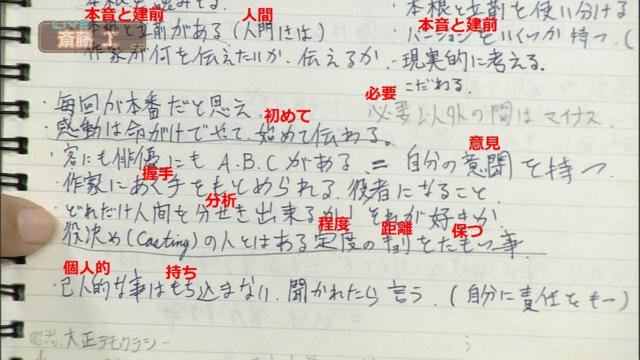 本音と建前
人間
本音と建前
本根と立前を使い分ける
斎藤 工
本根と立前がある(人門きは)
・バージョンをいくつか持つ。(
作家が何を伝えたいか、伝えるか
現実的に考える。
こだわる。
・毎回が本番だと思え
必要
必要以外の間はマイナス
初めて
・感動は命がけでやって、始めて伝わる。
意見
・客にも俳優にも A.B.C がある = 自分の意聞を持つ
握手
・作家にあく手をもとめられる、役者になること
分析
・どれだけ人間を分せき出来るか! それが好きか
程度 距離 保つ
役決め(Casting)の人とはある定度のキョリをたもつ事
個人的 持ち
・己人的な事はもち込まない。聞かれたら言う。(自分に責任をもー)
大正デモクラシー